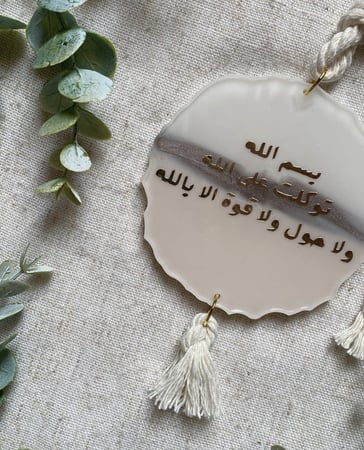 بسم الله
توكلت على الله
ولا حول ولا قوة الا بالله